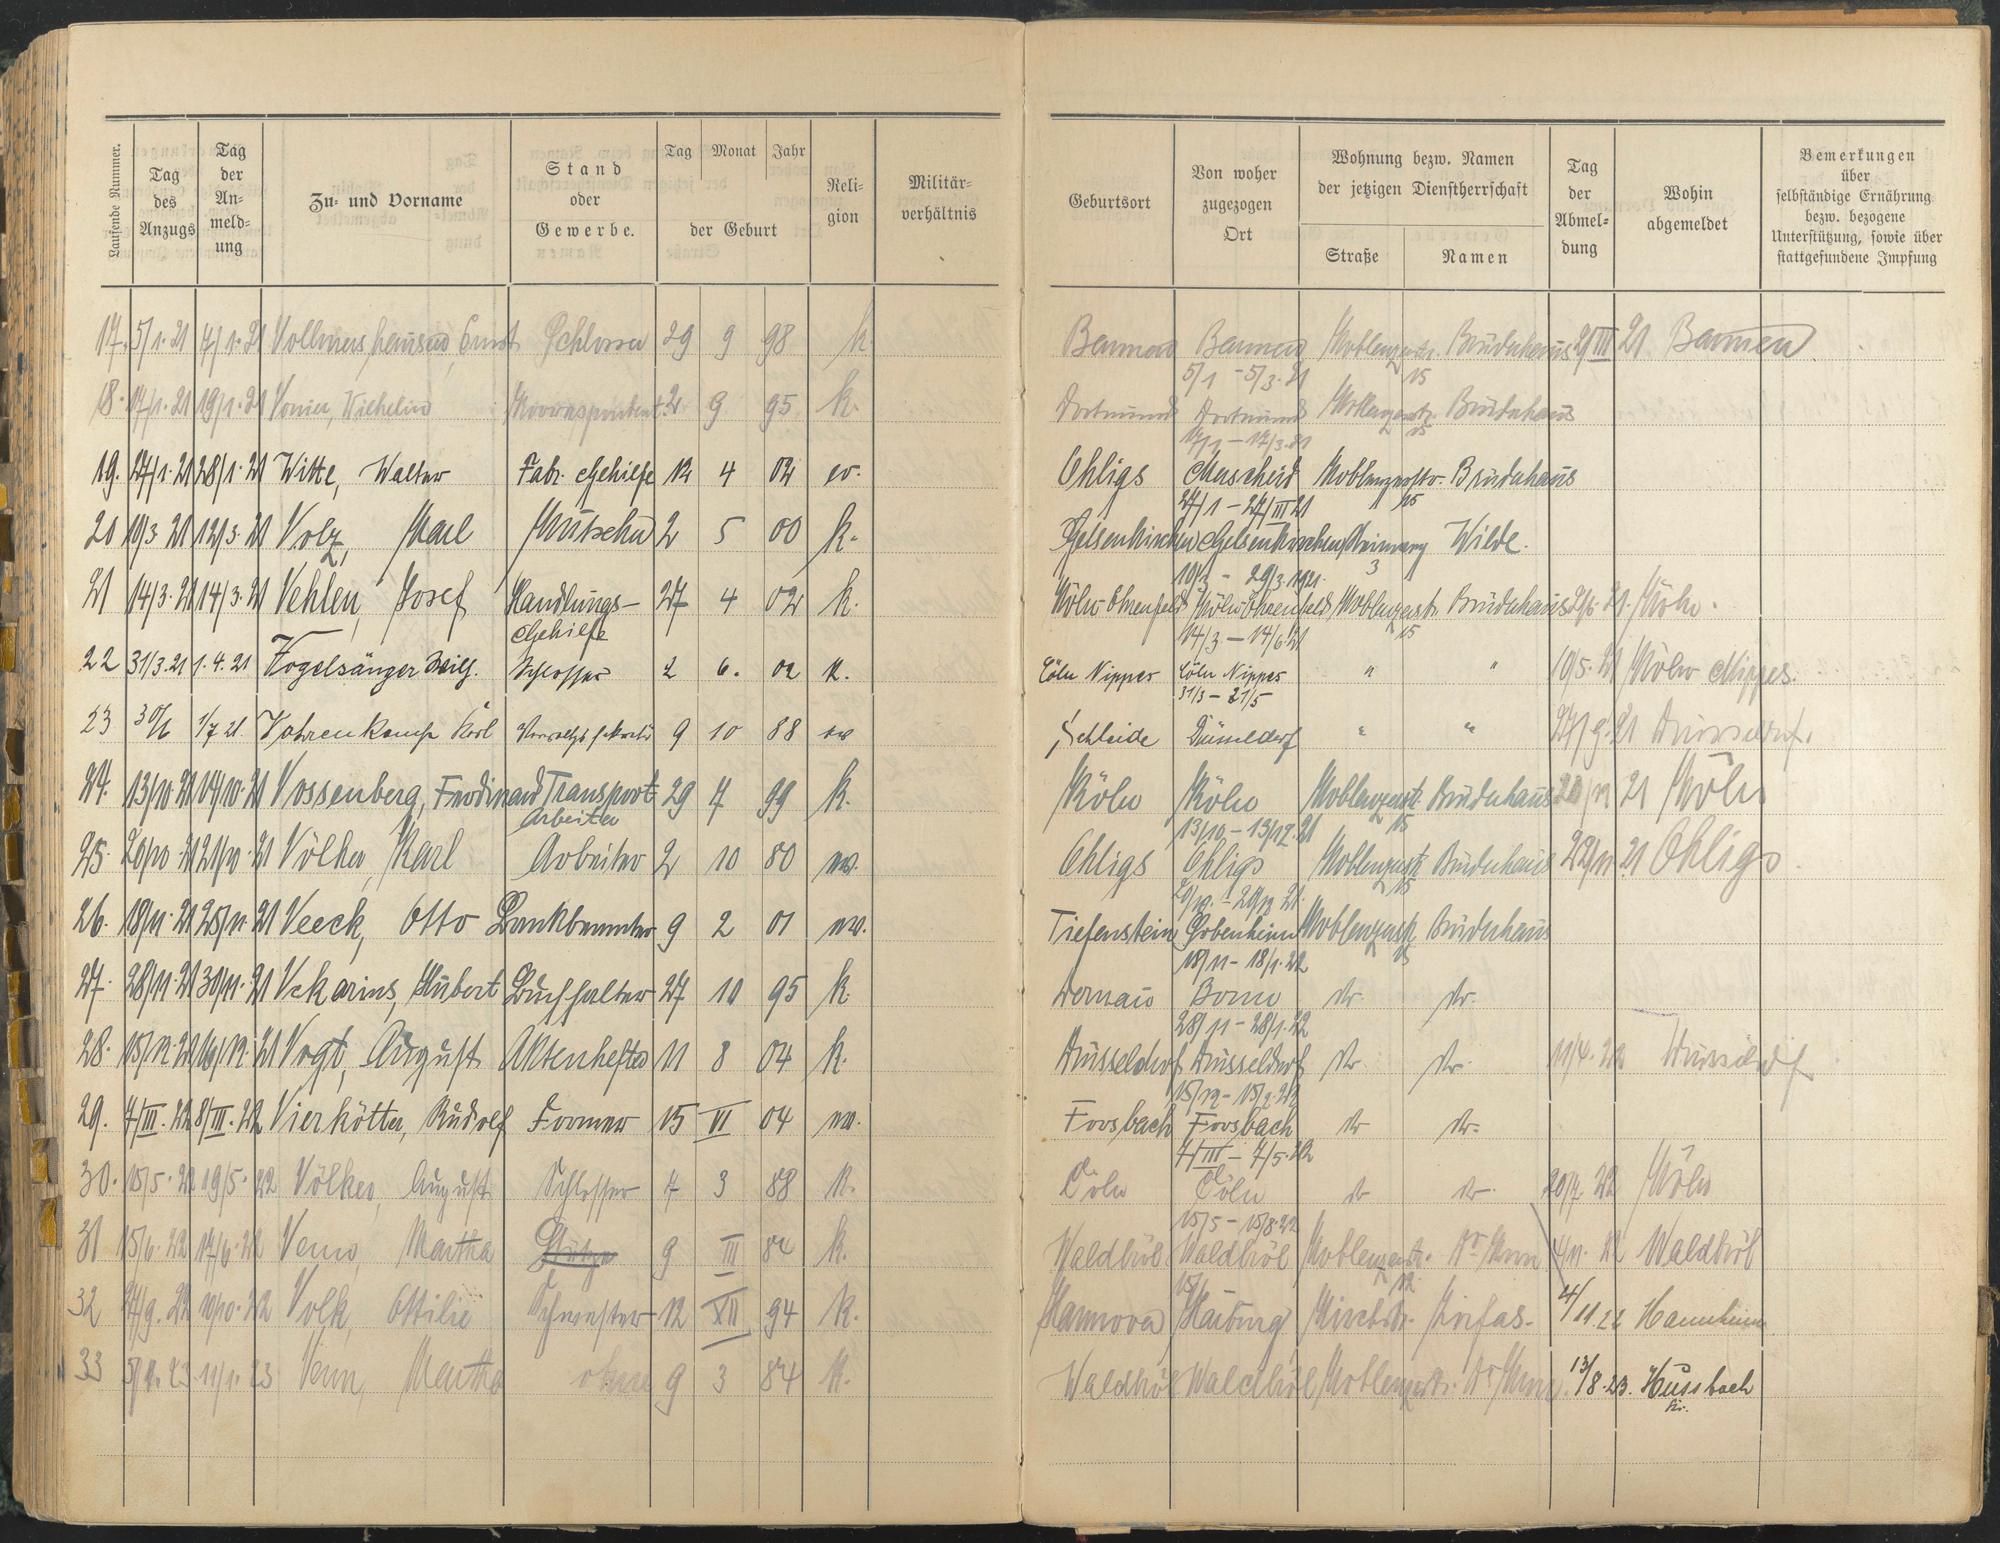 Laufende Nummer.
Tag des Anzugs
Tag der Anmeldung
Zu- und Vorname
Stand oder Gewerbe.
Tag Monat Jahr der Geburt
Religion
Militärverhältnis
Geburtsort
Von woher zugezogen Ort
Wohnung bezw. Namen der jetzigen Dienstherrschaft
Straße Namen
Tag der Abmeldung
Wohin abgemeldet
Bemerkungen über selbständige Ernährung bezw. bezogene Unterstützung, sowie über stattgefundene Impfung
17. 5/1. 21 7/1. 21 Ernst Schlosser 29 9 98 k. Barmen Barmen Koblenzerstr. Brüderhaus 21 Barmen
5/1 - 5/3. 21 15
18. 17/1. 21 19/1. 21 Wilhelm Korrespondent 2 9 95 k. Dortmund Dortmund Koblenzerstr. Brüderhaus
17/1 - 17/3. 21 15
19. 27/1. 21 28/1. 21 Witte, Walter Fabr. Gehilfe 12 4 02 ev. Ohligs Merscheid Koblenzerstr. Brüderhaus
27/1 - 27/III 21 15
20 10/3. 21 12/3. 21 Volz, Karl Kutscher 2 5 00 k. Gelsenkirchen Gelsenkirchen Wilde.
10/3 - 29/3. 1921. 3
21 14/3. 21 14/3. 21 Vehlen, Josef Handlungs- 27 4 02 k. Köln-Ehrenfeld Köln-Ehrenfeld Koblenzerstr. Brüderhaus Köln.
Gehilfe 14/3. - 14/6. 21 15
22 31/3. 21 1. 4. 21 Vogelsänger Wilh. Schlosser 2 6. 02 k. Cöln Nippes Cöln Nippes " " 19/5. 21 Köln Nippes.
31/3 - 21/5
23 30/6 1/7 21. Vahrenkamp Karl 9 10 88 ev Schleide Düsseldorf " " 27/9. 21 Düsseldorf.
24. 13/10. 21 14/10. 21 Vossenberg, Ferdinand Transport- 29 7 99 k. Köln Köln Koblenzerstr. Brüderhaus 20/12 21 Köln
Arbeiter 13/10. - 13/12. 21 15
25. 20/10. 21 21/10. 21 Völker, Karl Arbeiter 2 10 80 ev. Ohligs Ohligs Koblenzerstr. Brüderhaus 22/11. 21 Ohligs
15
26. 18/11. 21 25/11. 21 Veeck, Otto Bankbeamter 9 2 01 ev. Tiefenstein Koblenzerstr. Brüderhaus
18/11 - 18/1. 22 15
27. 28/11. 21 30/11. 21 Vekarius, Hubert Buchhalter 27 10 95 k. Dernau Bonn dto. dto.
28/11 - 28/1. 22
28. 15/12. 21 16/12. 21 Vogt, August Aktenhefter 11 8 04 k. Düsseldorf Düsseldorf dto. dto. 11/4. 22 Düsseldorf
15/12 - 15/2. 22
29. 7/III. 22 8/III. 22 Vierkötter, Rudolf Former 15 VI 04 ev. Forsbach Forsbach dto dto.
7/III - 7/5. 22
30. 15/5. 22 19/5. 22 Völker, August Schlosser 7 3 88 k. Cöln Cöln dto dto. 20/7. 22 Köln
15/5 - 15/8. 22
31 15/6. 22 17/6. 22 Venn, Martha Stütze 9 III 84 k. Waldbröl Waldbröl Koblenzerstr. Dr. 22 Waldbröl
12.
32 27/9. 22 10/10. 22 Volk, Ottilie Schwester 12 XII 94 k. Hannover Kirchstr. 4/11. 22 Mannheim
33 11/1. 23 Venn, Martha ohne 9 3 84 k. Waldbröl Waldbröl Koblenzerstr. Dr. 13/8. 23. Hussbach